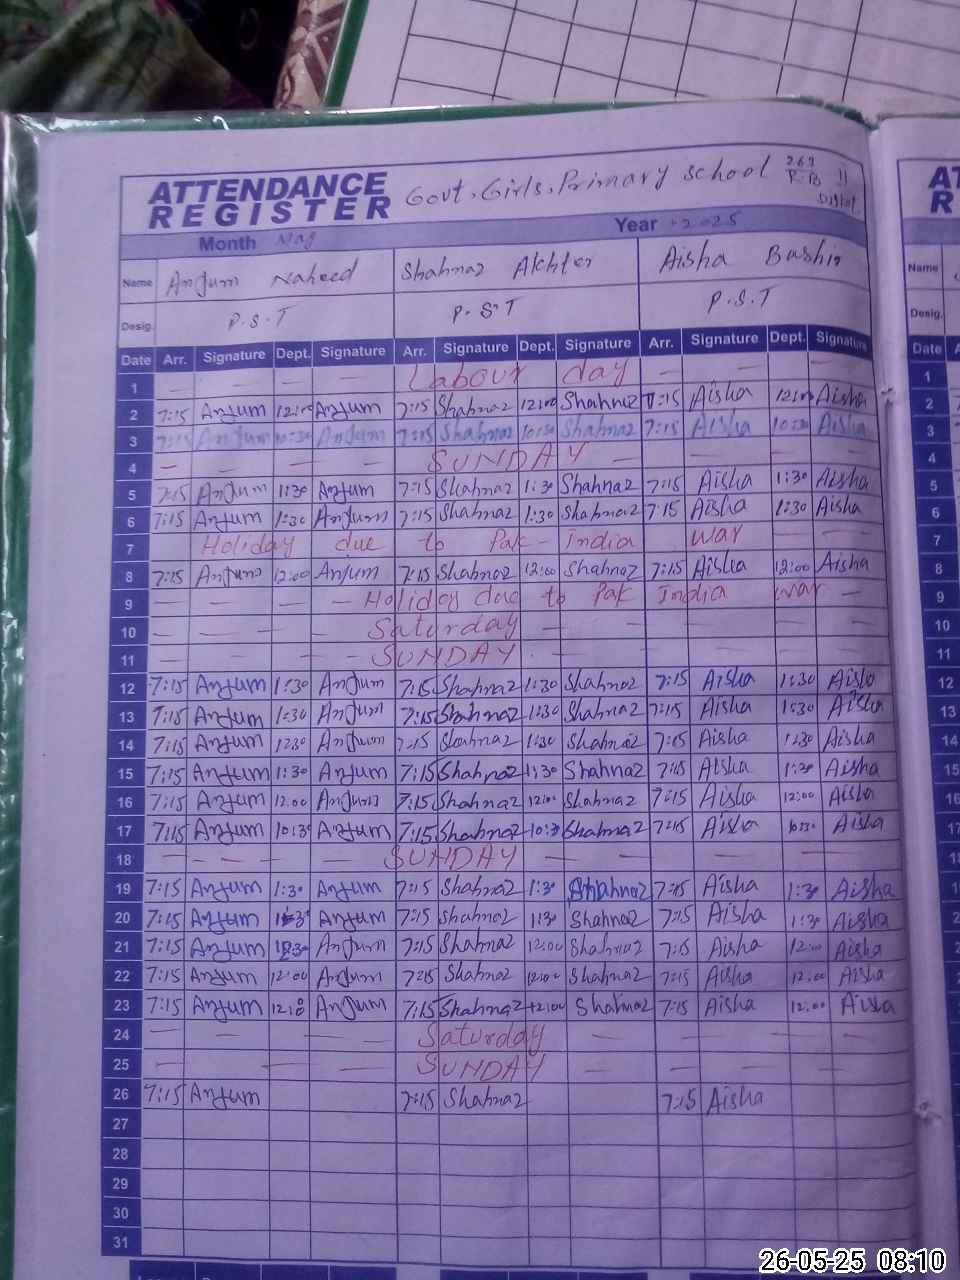 ATTENDANCE REGISTER Govt. Girls. Primary school 267 R.B 11
Month May Year 2025
Name Anjum Naheed Shahnaz Akhter Aisha Bashir Name
Desig. P.S.T P.S.T P.S.T Desig.
Date Arr. Signature Dept. Signature Arr. Signature Dept. Signature Arr. Signature Dept. Signature Date
1 Labour day 1
2 7:15 Anjum 12:00 Anjum 7:15 Shahnaz 12:00 Shahnaz 7:15 Aisha 12:00 Aisha 2
3 7:15 Anjum 10:30 Anjum 7:15 Shahnaz 10:30 Shahnaz 7:15 Aisha 10:30 Aisha 3
4 SUNDAY 4
5 7:15 Anjum 1:30 Anjum 7:15 Shahnaz 1:30 Shahnaz 7:15 Aisha 1:30 Aisha 5
6 7:15 Anjum 1:30 Anjum 7:15 Shahnaz 1:30 Shahnaz 7:15 Aisha 1:30 Aisha 6
7 Holiday due to Pak - India war 7
8 7:15 Anjum 12:00 Anjum 7:15 Shahnaz 12:00 Shahnaz 7:15 Aisha 12:00 Aisha 8
9 Holiday due to Pak India war 9
10 Saturday 10
11 SUNDAY 11
12 7:15 Anjum 1:30 Anjum 7:15 Shahnaz 1:30 Shahnaz 7:15 Aisha 1:30 Aisha 12
13 7:15 Anjum 1:30 Anjum 7:15 Shahnaz 1:30 Shahnaz 7:15 Aisha 1:30 Aisha 13
14 7:15 Anjum 1:30 Anjum 7:15 Shahnaz 1:30 Shahnaz 7:15 Aisha 1:30 Aisha 14
15 7:15 Anjum 1:30 Anjum 7:15 Shahnaz 1:30 Shahnaz 7:15 Aisha 1:30 Aisha 15
16 7:15 Anjum 12:00 Anjum 7:15 Shahnaz 12:00 Shahnaz 7:15 Aisha 12:00 Aisha 16
17 7:15 Anjum 10:30 Anjum 7:15 Shahnaz 10:30 Shahnaz 7:15 Aisha 10:30 Aisha 17
18 SUNDAY
19 7:15 Anjum 1:30 Anjum 7:15 Shahnaz 1:30 Shahnaz 7:15 Aisha 1:30 Aisha
20 7:15 Anjum 1:30 Anjum 7:15 Shahnaz 1:30 Shahnaz 7:15 Aisha 1:30 Aisha
21 7:15 Anjum Anjum 7:15 Shahnaz 12:00 Shahnaz 7:15 Aisha 12:00 Aisha
22 7:15 Anjum 12:00 Anjum 7:15 Shahnaz 12:00 Shahnaz 7:15 Aisha 12:00 Aisha
23 7:15 Anjum 12:00 Anjum 7:15 Shahnaz 12:00 Shahnaz 7:15 Aisha 12:00 Aisha
24 Saturday
25 SUNDAY
26 7:15 Anjum 7:15 Shahnaz 7:15 Aisha
27
28
29
30
31
26-05-25 08:10